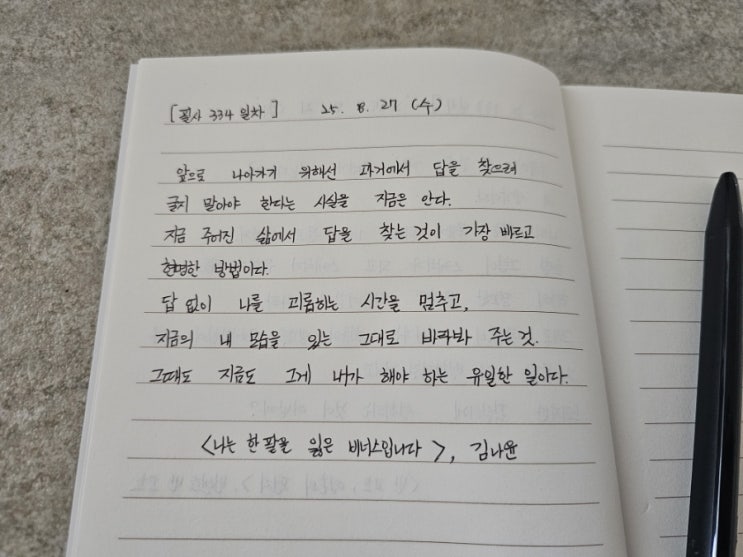 [필사 334일차] 25. 8. 27 (수)
앞으로 나아가기 위해선 과거에서 답을 찾으려
굴지 말아야 한다는 사실을 지금은 안다.
지금 주어진 삶에서 답을 찾는 것이 가장 빠르고
현명한 방법이다.
답 없이 나를 괴롭하는 시간을 멈추고,
지금의 내 모습을 있는 그대로 바라봐 주는 것.
그때도 지금도 그게 내가 해야 하는 유일한 일이다.
<나는 한 팔을 잃은 비너스입니다>, 김나윤